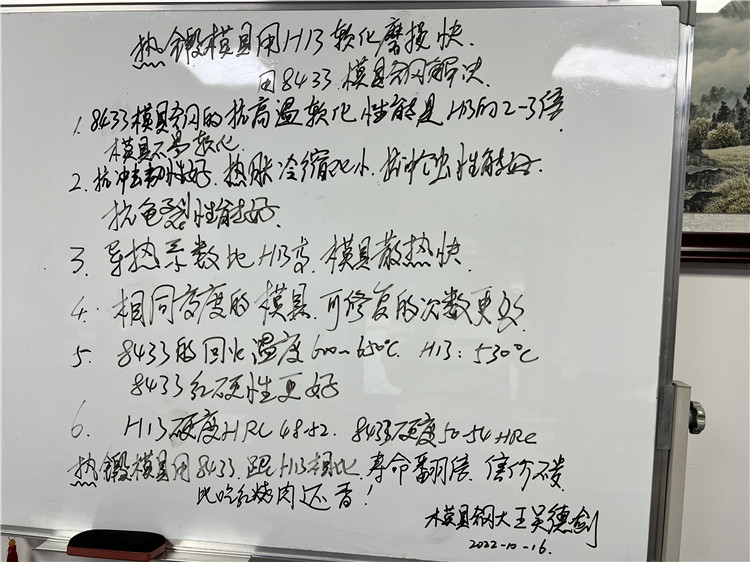 热锻模具用H13软化磨损快.
用8433模具钢解决.
1. 8433模具钢的抗高温软化性能是H13的2-3倍
模具不易软化.
2. 抗冲击韧性好. 热胀冷缩比小. 抗冲蚀性能好.
抗龟裂性能好.
3. 导热系数比H13高. 模具散热快.
4. 相同高度的模具. 可修复的次数更多
5. 8433的回火温度600~650℃. H13: 530℃
8433红硬性更好
6. H13硬度HRC 48-52. 8433硬度50-54HRC
热锻模具用8433. 跟H13相比. 寿命翻倍. 售价不贵
比吃红烧肉还香!
模具钢大王吴德剑
2022-10-16.